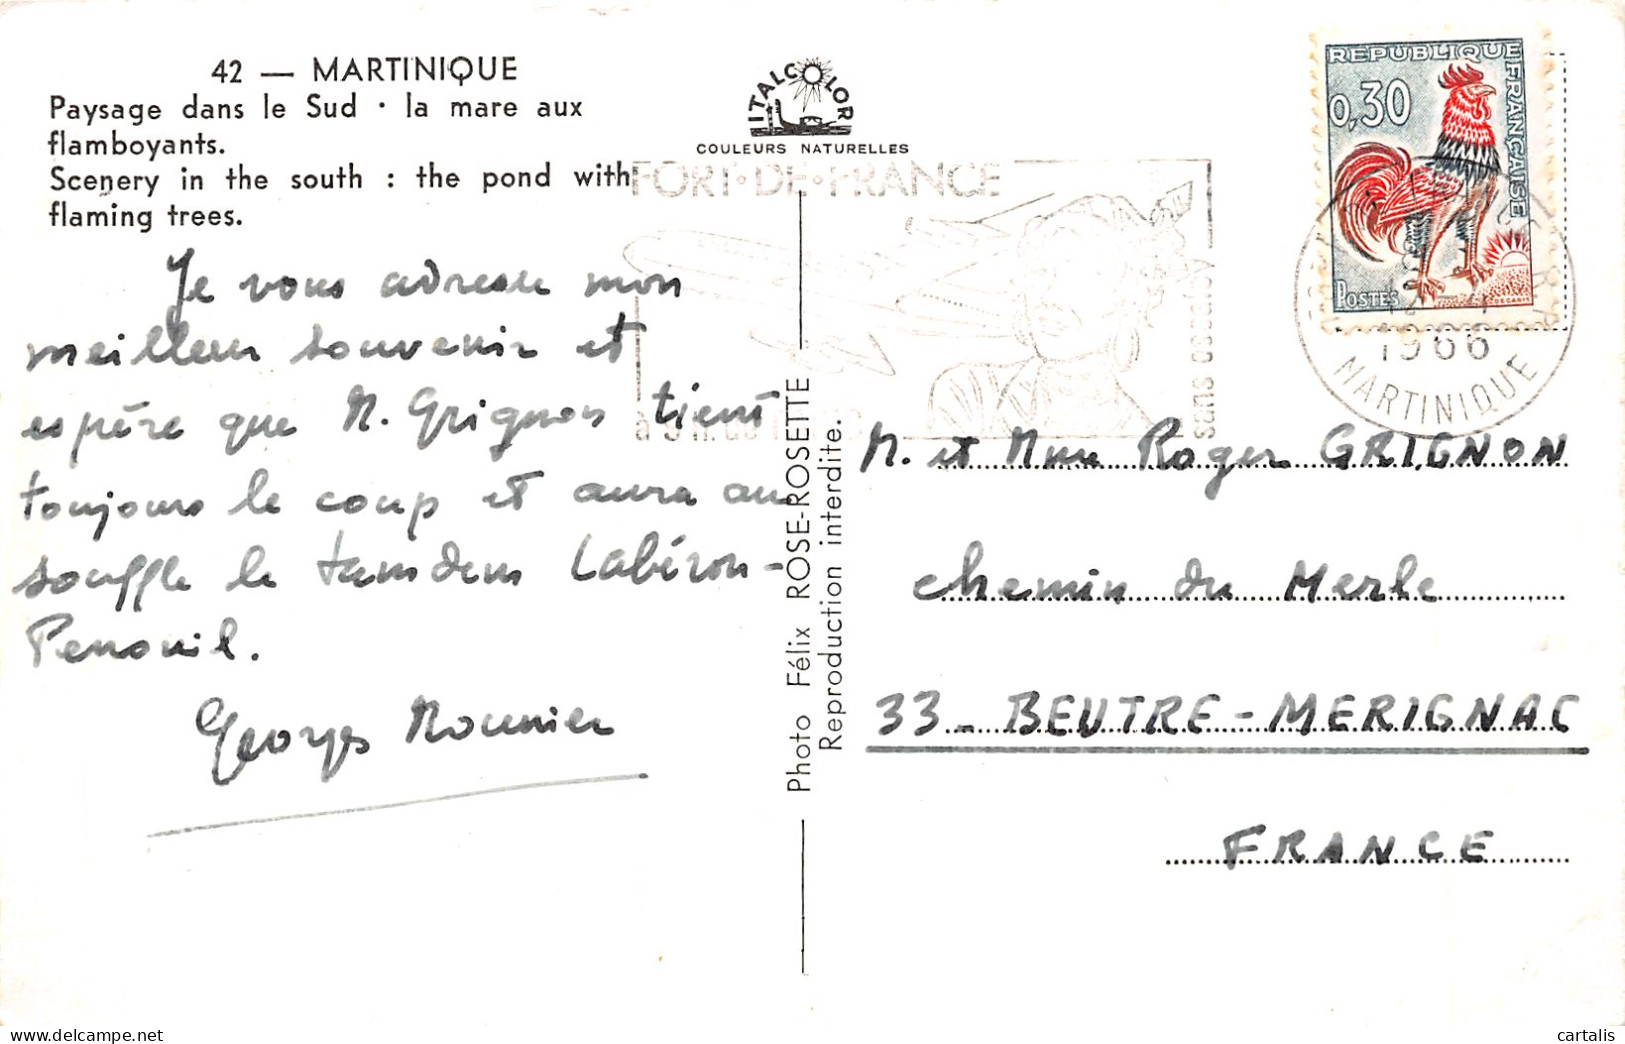 42 — MARTINIQUE
Paysage dans le Sud · la mare aux
flamboyants.
Scenery in the south : the pond with
flaming trees.
ITALCOLOR
COULEURS NATURELLES
FORT·DE·FRANCE
sans escale
REPUBLIQUE FRANÇAISE
0,30
POSTES
DECARIS
1966
MARTINIQUE
Je vous adresse mon
meilleur souvenir et
espère que M. Grignon tient
toujours le coup et aura au
souffle le tandem Labéron-
Penouil.
Georges Mounier
Photo Félix ROSE-ROSETTE
Reproduction interdite.
M. et Mme Roger GRIGNON
chemin du Merle
33 - BEUTRE - MERIGNAC
FRANCE
www.delcampe.net
cartalis